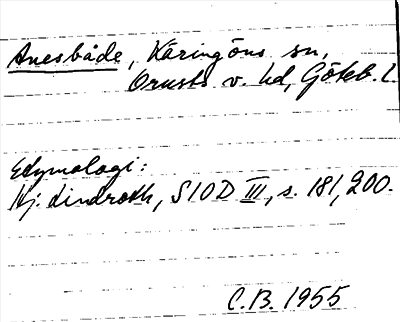 Anesbåde, Käringöns sn,
Orusts v. hd, Göteb. l.
Etymologi:
Hj. Lindroth, SIOD III, s. 181, 200.
C.B. 1955